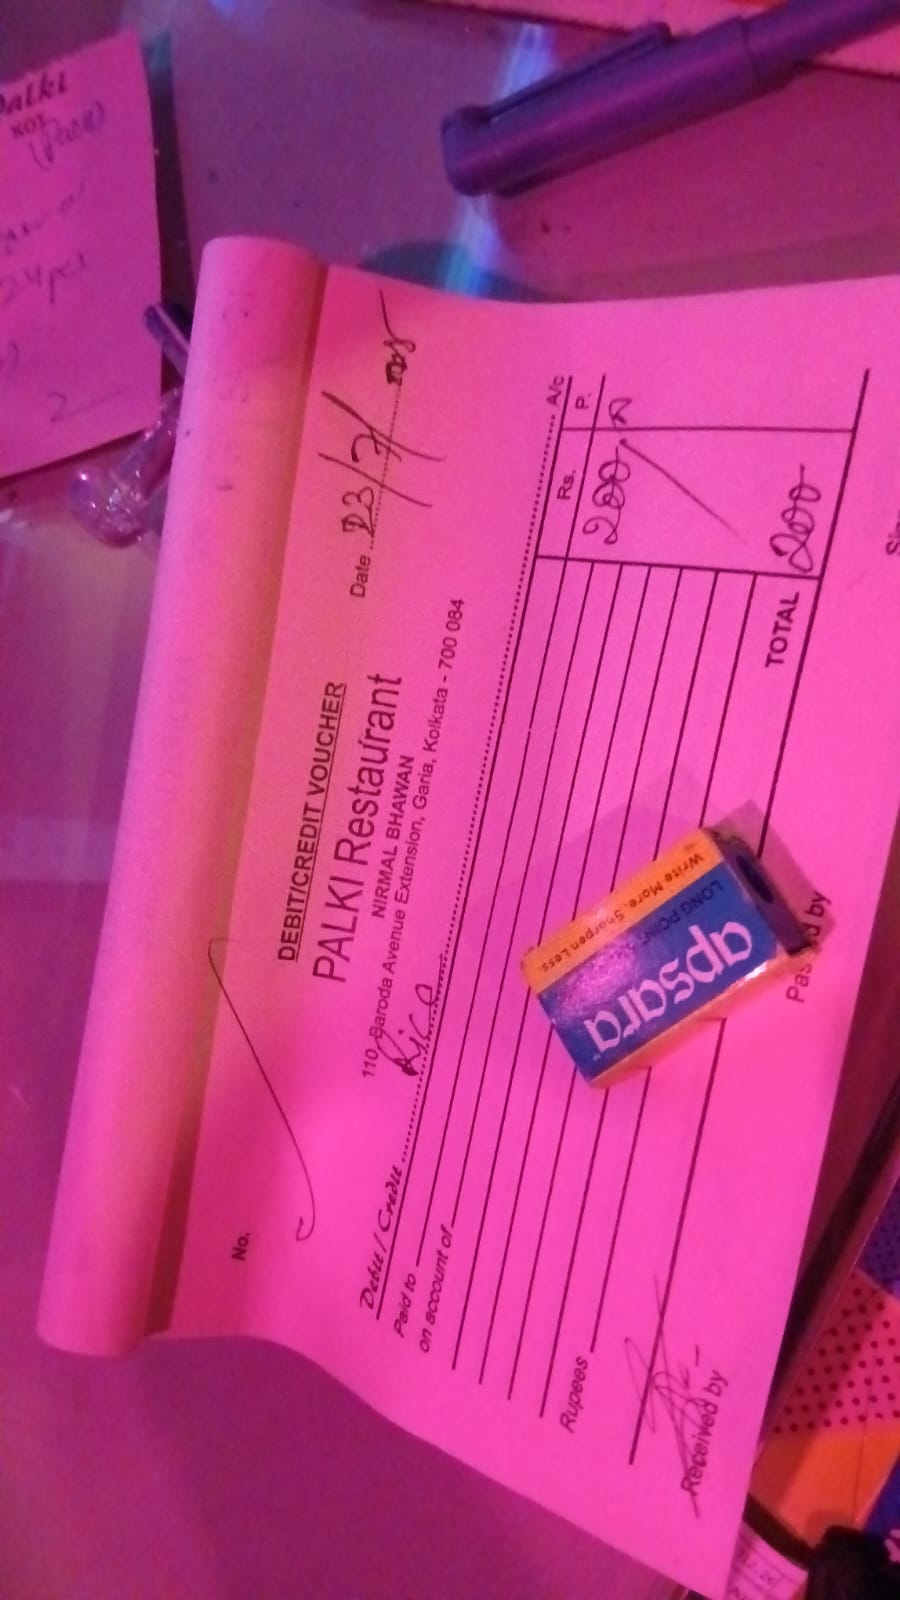 Palki
KOT
(Pack)
24 pcs
2
No.
DEBIT/CREDIT VOUCHER
PALKI Restaurant
NIRMAL BHAWAN
110, Baroda Avenue Extension, Garia, Kolkata - 700 084
Date 23/7/
Debit / Credit Rice A/c
Paid to
on account of
Rs. P.
200
Rupees
TOTAL 200
Received by
Passed by
apsara
LONG POINT
Write More. Sharpen Less.